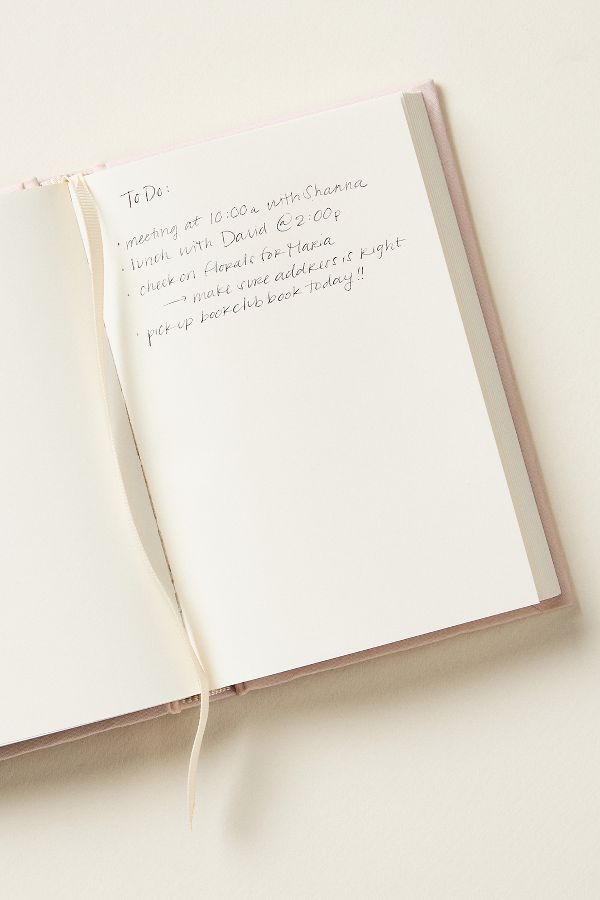 To Do:
· meeting at 10:00a with Shanna
· lunch with David @ 2:00p
· check on florals for Maria
→ make sure address is right
· pick up bookclub book today!!